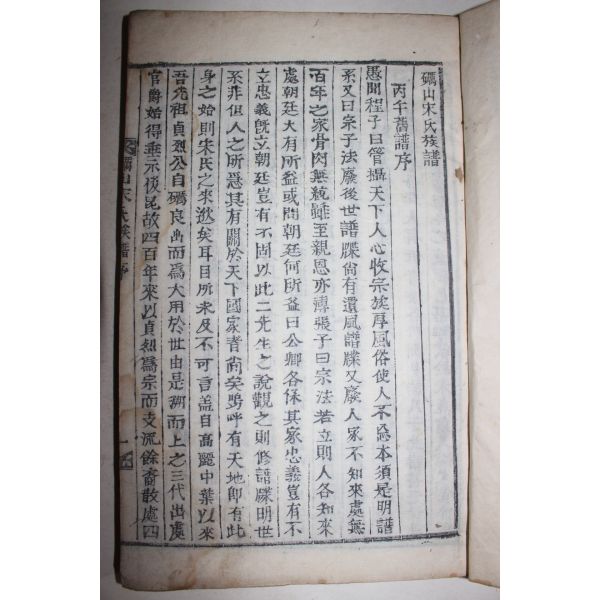 礪山宋氏族譜
丙午舊譜序
愚聞程子曰管攝天下人心收宗族厚風俗使人不忘本須是明譜
系又曰宗子法廢後世譜牒尙有遺風譜牒又廢人家不知來處無
百年之家骨肉無統雖至親恩亦薄張子曰宗法若立則人各知來
處朝廷大有所益或問朝廷何所益曰公卿各保其家忠義豈有不
立忠義旣立朝廷豈有不固以此二先生之說觀之則修譜牒明世
系非但人之所急其有關於天下國家者尙矣嗚呼有天地卽有此
身之始則宋氏之來逖矣耳目所未及不可言盖自高麗中葉以來
吾先祖貞烈公自礪良出而爲大用於世由是溯而上之三代出處
官爵始得垂示後昆故四百年來以貞烈爲宗而支流餘裔散處四
礪山宋氏族譜序
一